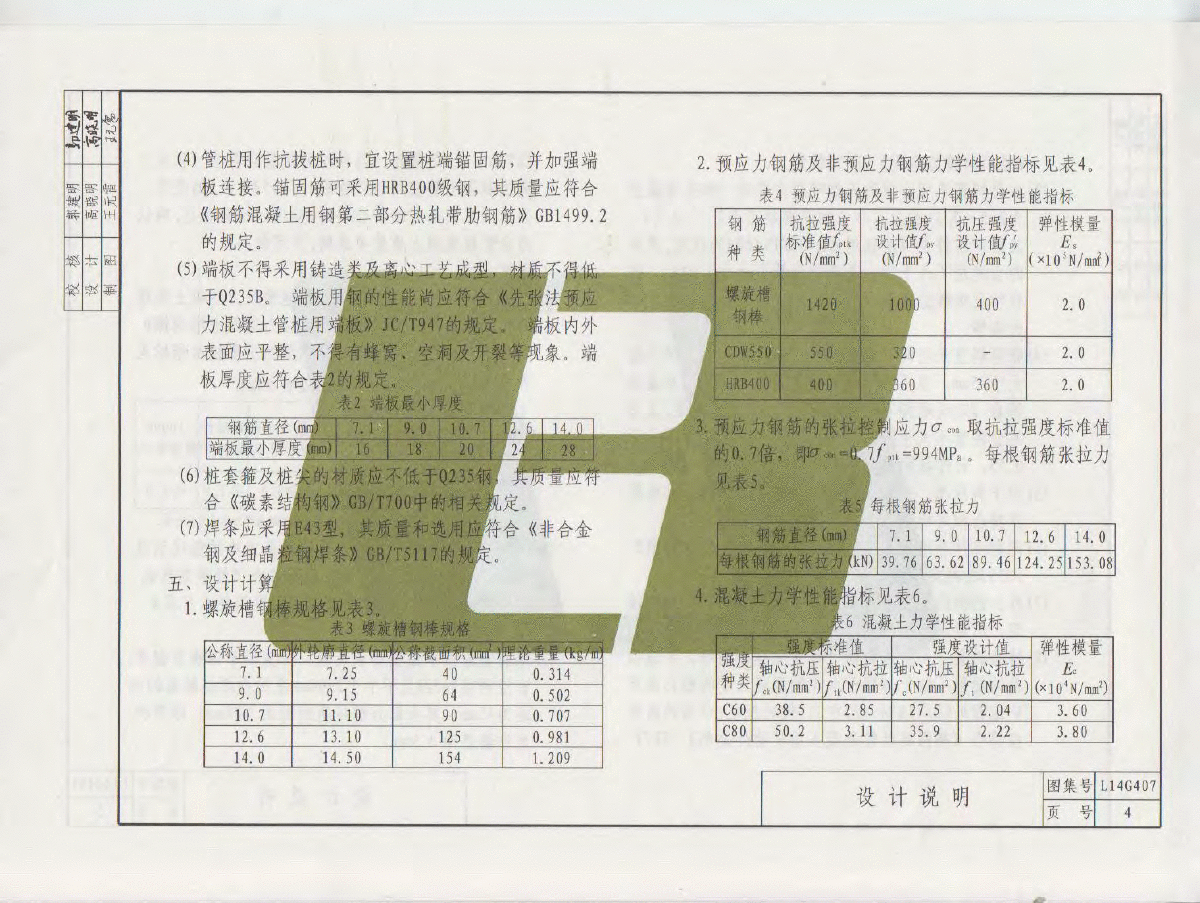 (4) 管桩用作抗拔桩时，宜设置桩端锚固筋，并加强端
板连接。锚固筋可采用HRB400级钢，其质量应符合
《钢筋混凝土用钢第二部分热轧带肋钢筋》GB1499.2
的规定。
(5) 端板不得采用铸造类及离心工艺成型，材质不得低
于Q235B。 端板用钢的性能尚应符合《先张法预应
力混凝土管桩用端板》JC/T947的规定。 端板内外
表面应平整，不得有蜂窝、空洞及开裂等现象。端
板厚度应符合表2的规定。
表2 端板最小厚度
钢筋直径(mm) 7.1 9.0 10.7 12.6 14.0
端板最小厚度(mm) 16 18 20 24 28
(6) 桩套箍及桩尖的材质应不低于Q235钢，其质量应符
合《碳素结构钢》GB/T700中的相关规定。
(7) 焊条应采用E43型，其质量和选用应符合《非合金
钢及细晶粒钢焊条》GB/T5117的规定。
五、设计计算
1. 螺旋槽钢棒规格见表3。
表3 螺旋槽钢棒规格
公称直径(mm) 外轮廓直径(mm) 公称截面积(mm²) 理论重量(kg/m)
7.1 7.25 40 0.314
9.0 9.15 64 0.502
10.7 11.10 90 0.707
12.6 13.10 125 0.981
14.0 14.50 154 1.209
2. 预应力钢筋及非预应力钢筋力学性能指标见表4。
表4 预应力钢筋及非预应力钢筋力学性能指标
钢筋种类 抗拉强度标准值fptk(N/mm²) 抗拉强度设计值fpy(N/mm²) 抗压强度设计值f′py(N/mm²) 弹性模量Es(×10⁵N/mm²)
螺旋槽钢棒 1420 1000 400 2.0
CDW550 550 320 2.0
HRB400 400 360 360 2.0
3. 预应力钢筋的张拉控制应力σcon 取抗拉强度标准值
的0.7倍，即σcon=0.7fptk=994MPa。每根钢筋张拉力
见表5。
表5 每根钢筋张拉力
钢筋直径(mm) 7.1 9.0 10.7 12.6 14.0
每根钢筋的张拉力(kN) 39.76 63.62 89.46 124.25 153.08
4. 混凝土力学性能指标见表6。
表6 混凝土力学性能指标
强度种类 强度标准值 强度设计值 弹性模量
轴心抗压 轴心抗拉 轴心抗压 轴心抗拉 Ec
fck(N/mm²) ftk(N/mm²) fc(N/mm²) ft(N/mm²) (×10⁴N/mm²)
C60 38.5 2.85 27.5 2.04 3.60
C80 50.2 3.11 35.9 2.22 3.80
校核 郭建明 郭建明
设计 高晓明 高晓明
制图 王元
设计说明
图集号 L14G407
页号 4